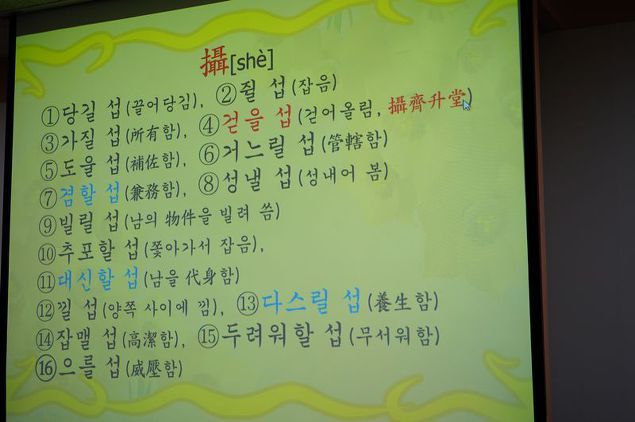 攝[shè]
①당길 섭(끌어당김), ②쥘 섭(잡음)
③가질 섭(所有함), ④걷을 섭(걷어올림, 攝齊升堂)
⑤도울 섭(補佐함), ⑥거느릴 섭(管轄함)
⑦겸할 섭(兼務함), ⑧성낼 섭(성내어 봄)
⑨빌릴 섭(남의 物件을 빌려 씀)
⑩추포할 섭(쫓아가서 잡음),
⑪대신할 섭(남을 代身함)
⑫낄 섭(양쪽 사이에 낌), ⑬다스릴 섭(養生함)
⑭잡맬 섭(高潔함), ⑮두려워할 섭(무서워함)
⑯으를 섭(威壓함)